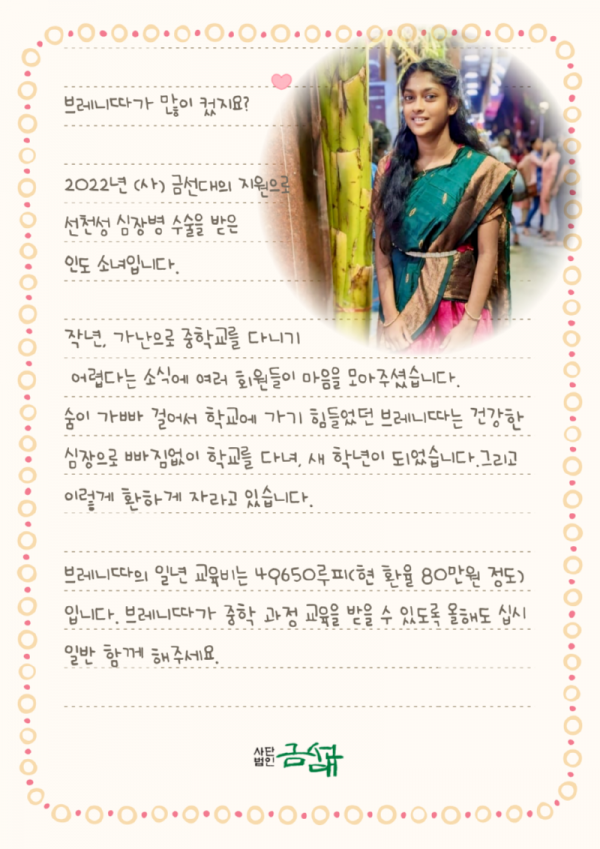 브레니따가 많이 컸지요?
2022년 (사) 금선대의 지원으로
선천성 심장병 수술을 받은
인도 소녀입니다.
작년, 가난으로 중학교를 다니기
어렵다는 소식에 여러 회원들이 마음을 모아주셨습니다.
숨이 가빠 걸어서 학교에 가기 힘들었던 브레니따는 건강한
심장으로 빠짐없이 학교를 다녀, 새 학년이 되었습니다.그리고
이렇게 환하게 자라고 있습니다.
브레니따의 일년 교육비는 49650루피(현 환율 80만원 정도)
입니다. 브레니따가 중학 과정 교육을 받을 수 있도록 올해도 십시
일반 함께 해주세요.
사단
법인 금선대